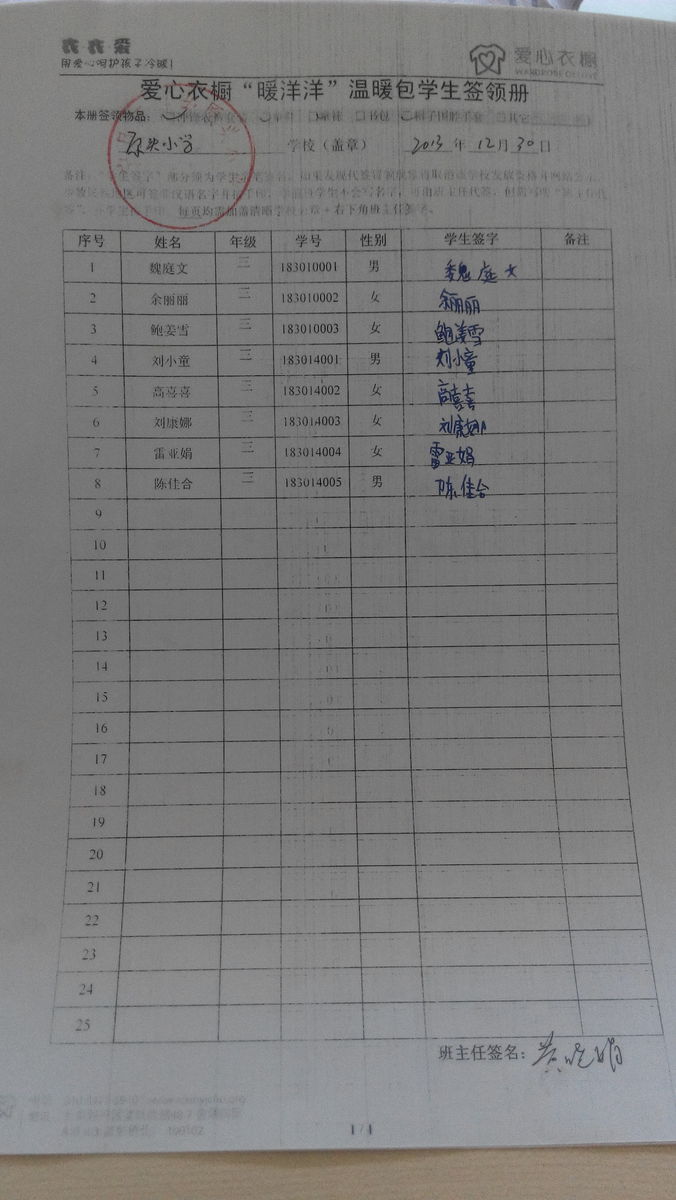 用爱心呵护孩子冷暖！
爱心衣橱
WARDROBE OF LOVE
爱心衣橱“暖洋洋”温暖包学生签领册
本册签领物品：
书包 帽子围脖手套 其它
小学 学校（盖章） 2013 年 12 月 30 日
每页均需加盖清晰学校公章+右下角班主任签字。
序号 姓名 年级 学号 性别 学生签字 备注
1 魏庭文 三 183010001 男 魏庭文
2 余丽丽 三 183010002 女 余丽丽
3 鲍姜雪 三 183010003 女 鲍姜雪
4 刘小童 三 183014001 男 刘小童
5 高喜喜 三 183014002 女 高喜喜
6 刘康娜 三 183014003 女 刘康娜
7 雷亚娟 三 183014004 女 雷亚娟
8 陈佳合 三 183014005 男 陈佳合
9
10
11
12
13
14
15
16
17
18
19
20
21
22
23
24
25
班主任签名：
1 / 1